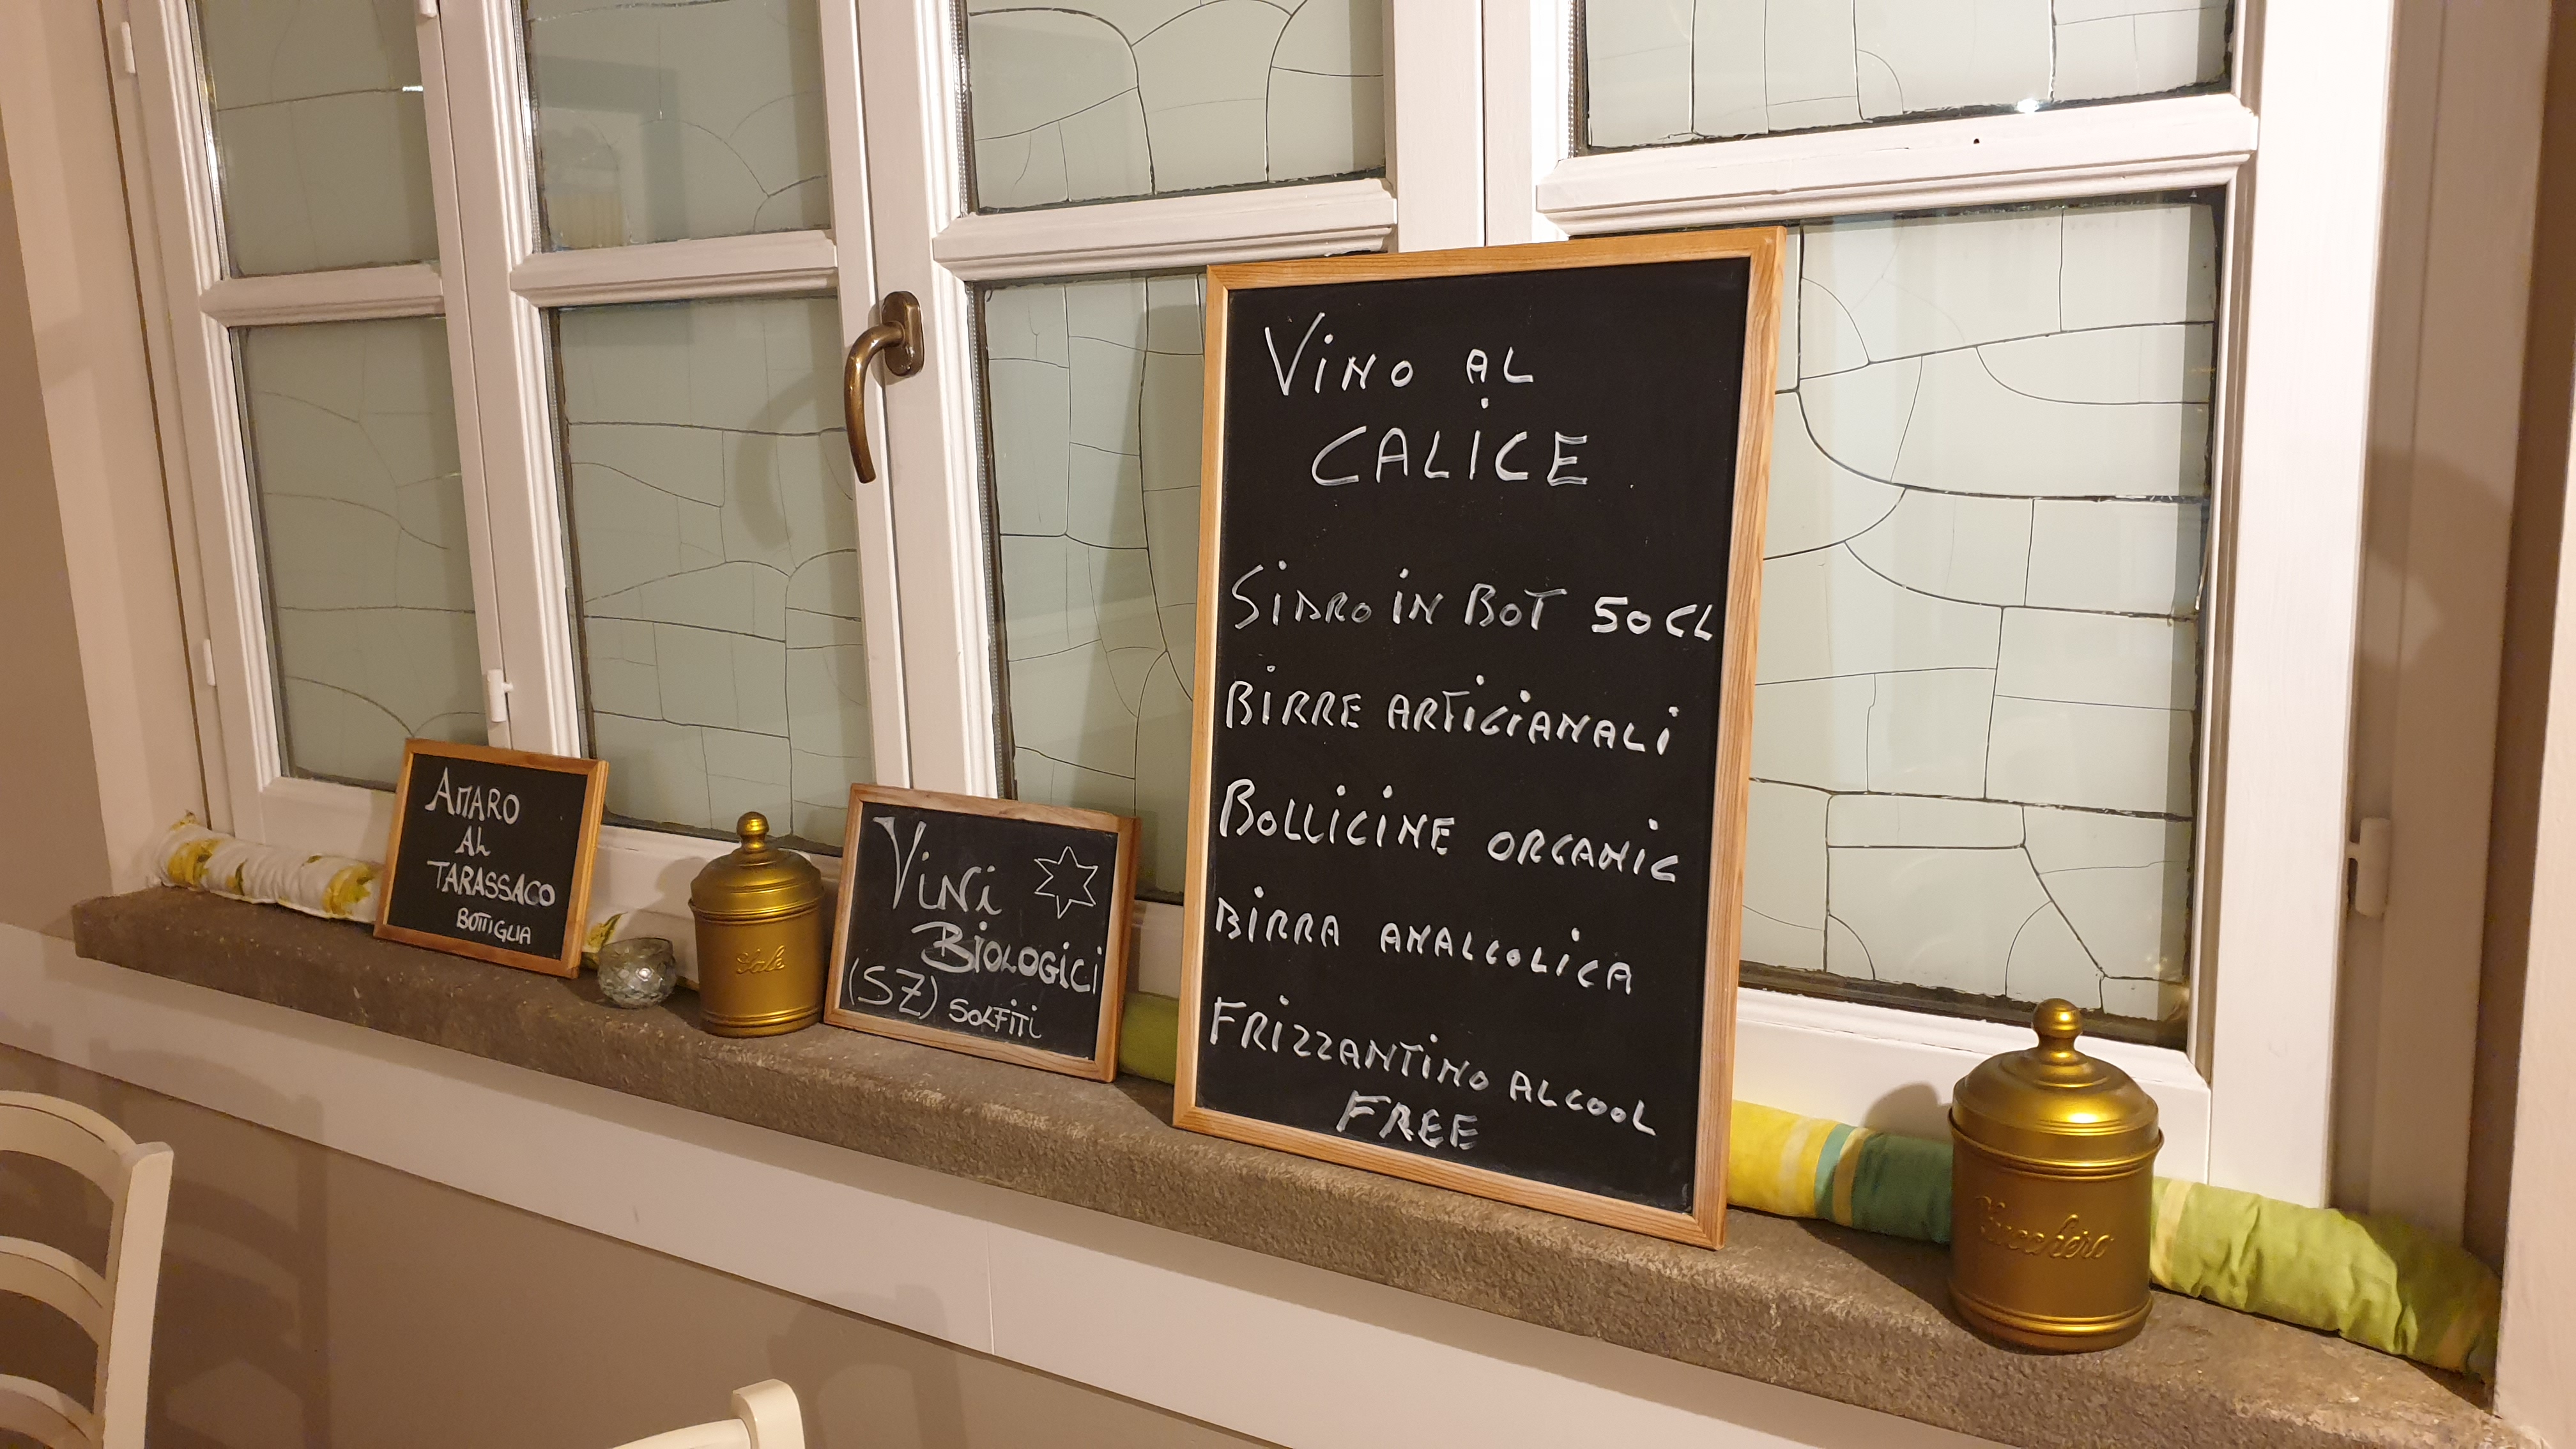 AMARO
AL
TARASSACO
BOTTIGLIA
Sale
ViNi
BiOLOGiCi
(SZ) SOLFiTi
ViNO AL
CALICE
SiDRO iN BOT 50 CL
BiRRE ARTiGiANALi
BOLLiCiNE ORGANiC
BiRRA ANALCOLiCA
FRiZZANTiNO ALCOOL
FREE
Zucchero